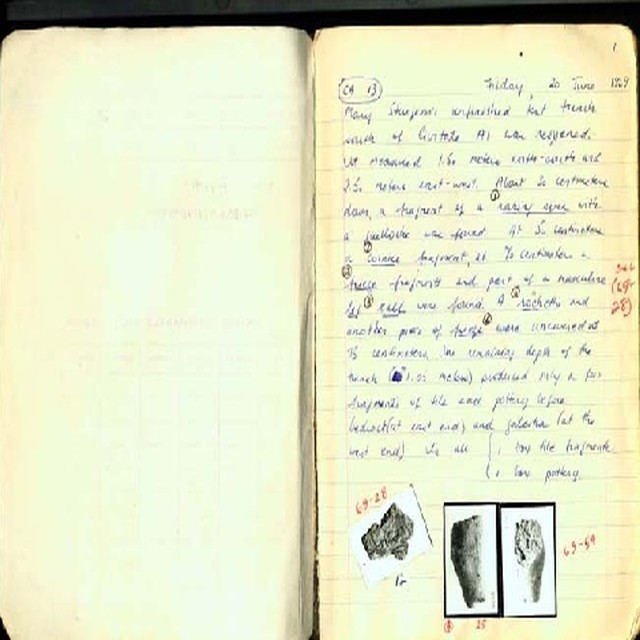 1
CA 13 Friday, 20 June 1969
Mary Sturgeon's unfinished trench
south of Civitate A1 was reopened.
It measured 1.50 meters north-south and
2.50 meters east-west. About 30 centimeters
down, a fragment of a raking sima with
a was found. At 50 centimeters
a cornice fragment, at 70 centimeters a
frieze fragments and part of a masculine
leg were found. A and
another piece of frieze were uncovered at
75 centimeters. The remaining depth of the
trench (1.05 meters) produced only a few
fragments of tile and pottery before
bedrock (at east end) and (at the
west end). In all 1 box tile fragments
1 box pottery.
(69-
28)
69-28
69-59
25